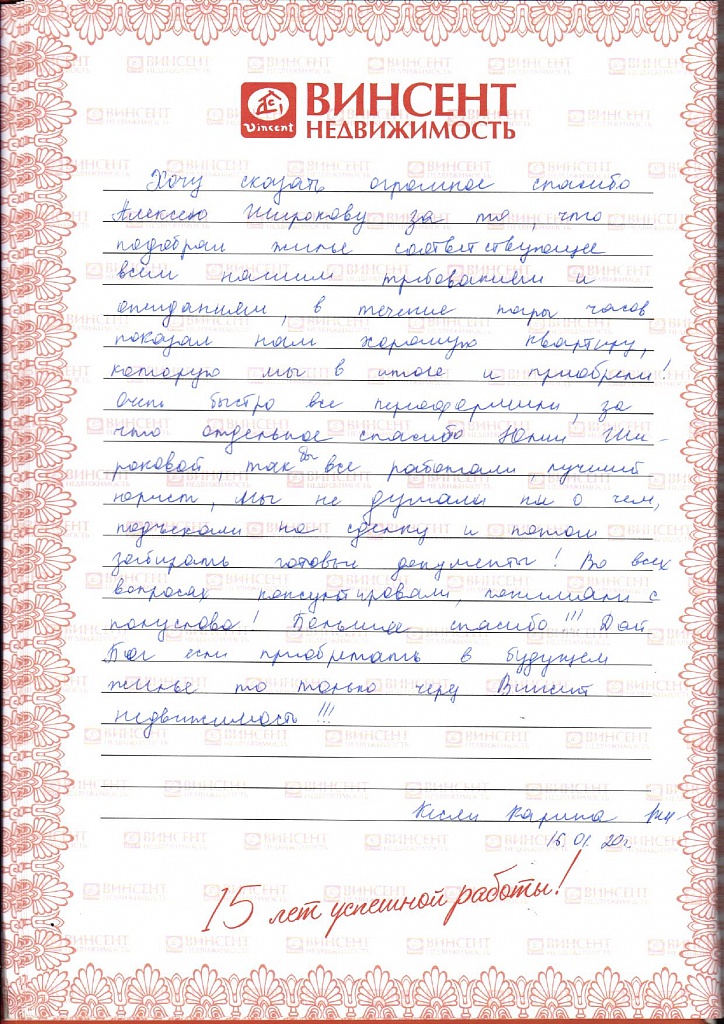 Vincent
ВИНСЕНТ
НЕДВИЖИМОСТЬ
Хочу сказать огромное спасибо
Алексею Широкову за то, что
подобрал жилье соответствующее
всем нашим требованиям и
ожиданиям, в течение пары часов
показал нам хорошую квартиру,
которую мы в итоге и приобрели!
Очень быстро все переоформили, за
что отдельное спасибо Юлии Ши-
роковой, так бы все работали, лучший
юрист, мы не думали ни о чем,
подъехали на сделку и потом
забирать готовые документы! Во всех
вопросах консультировали, понимали с
полуслова! Большое спасибо!!! Дай
Бог если приобретать в будущем
жилье то только через Винсент
недвижимость!!!
Карина
16.01.20г.
15 лет успешной работы!